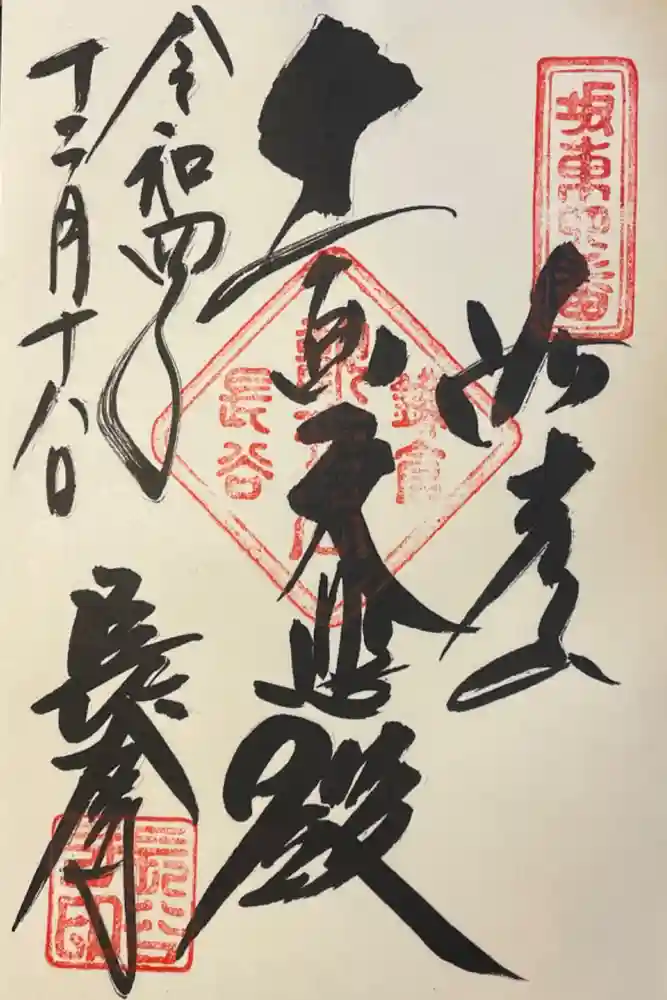 坂東
奉拝
十一面大悲殿
鎌倉
長谷
令和四年
十二月十八日
長谷寺